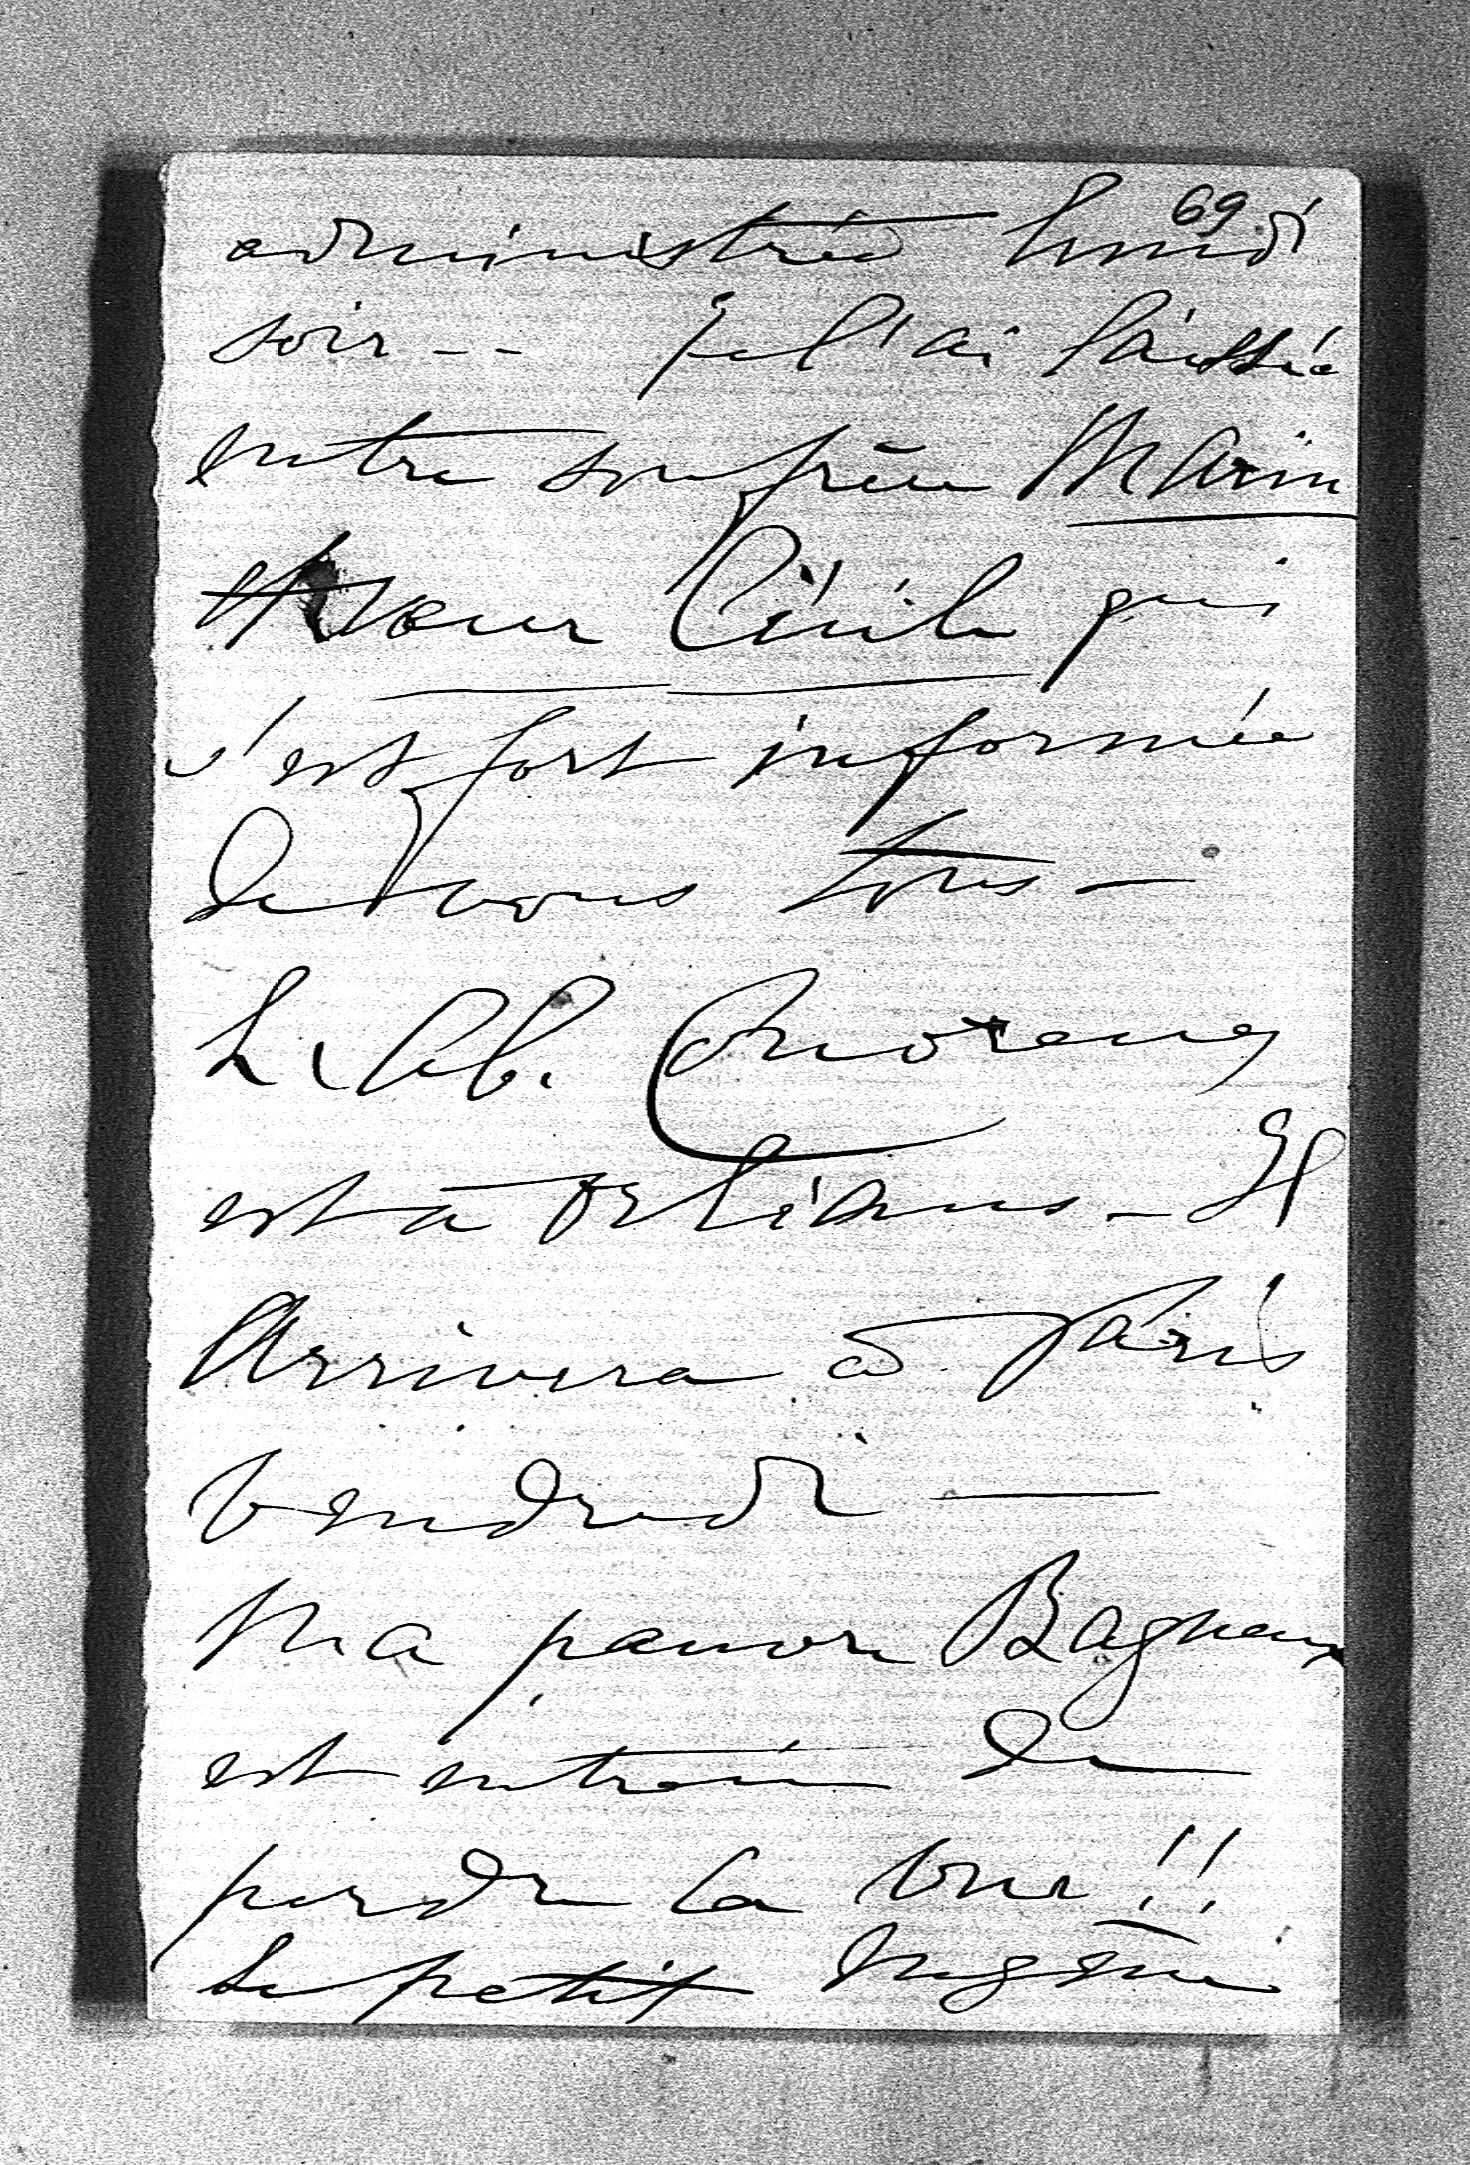 69
administrée lundi
soir -- je l'ai laissée
entre son frère Marin
et sœur Cécile qui
s'est fort informée
de vous tous -
L'Ab.
est à Orléans - Il
Arrivera à Paris
Vendredi —
Ma pauvre Bagneux
est en train de
perdre la vue !!
Le petit